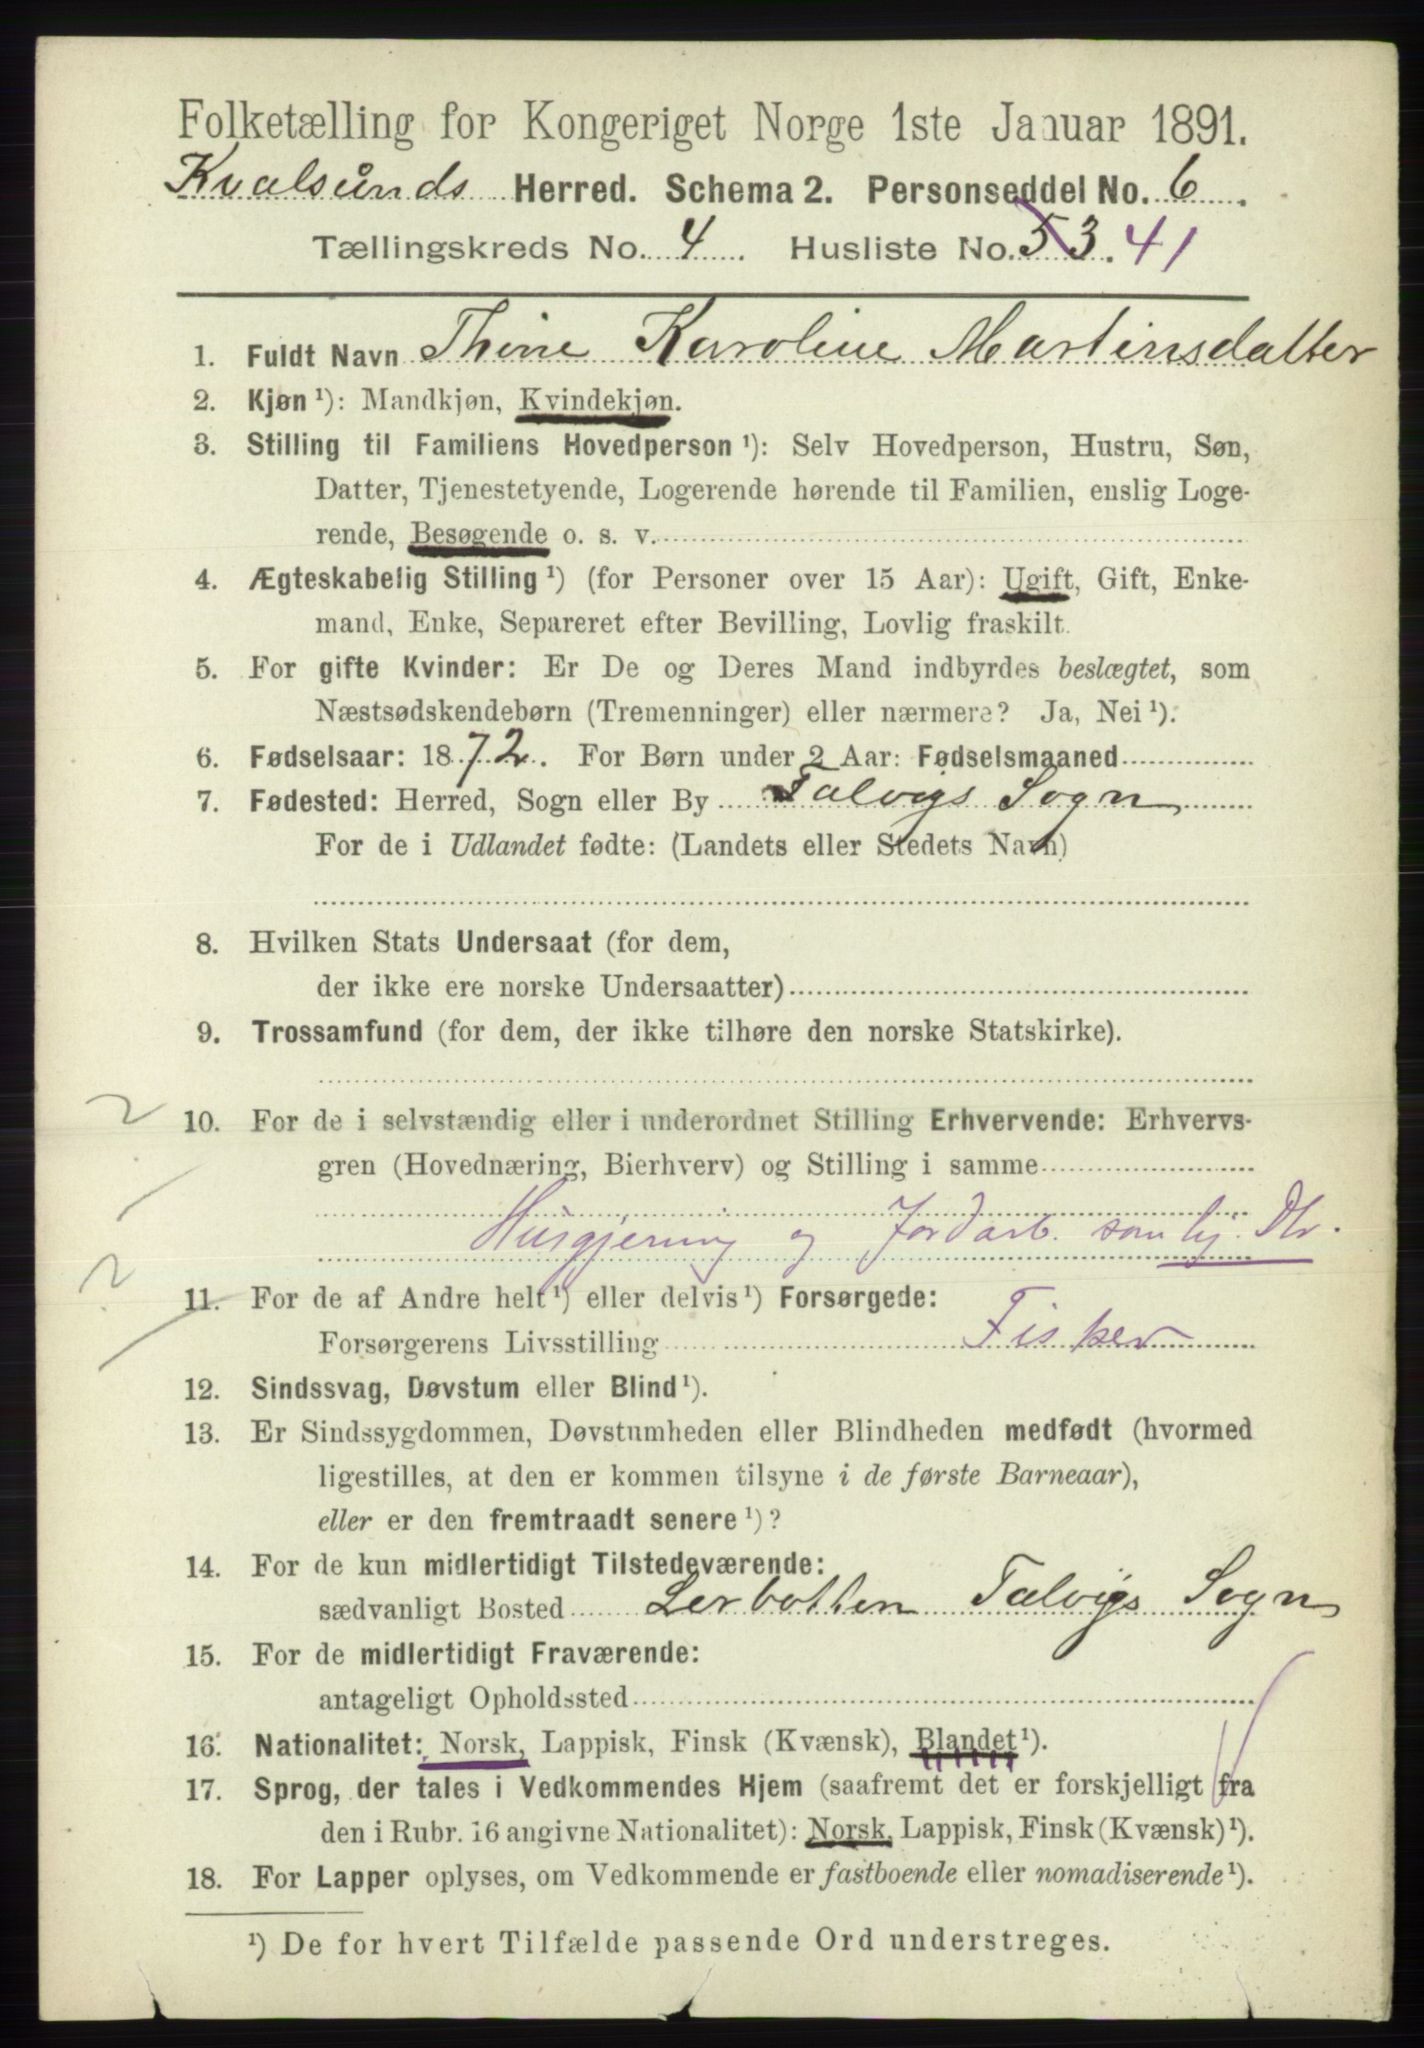 Folketælling for Kongeriget Norge 1ste Januar 1891.
Kvalsunds Herred. Schema 2. Personseddel No. 6.
Tællingskreds No. 4. Husliste No. 53. 41
1. Fuldt Navn Thine Karoline Martinsdatter
2. Kjøn ¹): Mandkjøn, Kvindekjøn.
3. Stilling til Familiens Hovedperson ¹): Selv Hovedperson, Hustru, Søn,
Datter, Tjenestetyende, Logerende hørende til Familien, enslig Loge-
rende, Besøgende o. s. v.
4. Ægteskabelig Stilling ¹) (for Personer over 15 Aar): Ugift, Gift, Enke-
mand, Enke, Separeret efter Bevilling, Lovlig fraskilt.
5. For gifte Kvinder: Er De og Deres Mand indbyrdes beslægtet, som
Næstsødskendebørn (Tremenninger) eller nærmere? Ja, Nei ¹).
6. Fødselsaar: 1872. For Børn under 2 Aar: Fødselsmaaned
7. Fødested: Herred, Sogn eller By Talvigs Sogn
For de i Udlandet fødte: (Landets eller Stedets Navn)
8. Hvilken Stats Undersaat (for dem,
der ikke ere norske Undersaatter)
9. Trossamfund (for dem, der ikke tilhøre den norske Statskirke).
10. For de i selvstændig eller i underordnet Stilling Erhvervende: Erhvervs-
gren (Hovednæring, Bierhverv) og Stilling i samme
Husgjerning og Jordarb. som hj. Dtr.
11. For de af Andre helt ¹) eller delvis ¹) Forsørgede:
Forsørgerens Livsstilling Fisker
12. Sindssvag, Døvstum eller Blind ¹).
13. Er Sindssygdommen, Døvstumheden eller Blindheden medfødt (hvormed
ligestilles, at den er kommen tilsyne i de første Barneaar),
eller er den fremtraadt senere ¹)?
14. For de kun midlertidigt Tilstedeværende:
sædvanligt Bosted Lerbotten Talvigs Sogn
15. For de midlertidigt Fraværende:
antageligt Opholdssted
16. Nationalitet: Norsk, Lappisk, Finsk (Kvænsk), Blandet ¹).
17. Sprog, der tales i Vedkommendes Hjem (saafremt det er forskjelligt fra
den i Rubr. 16 angivne Nationalitet): Norsk, Lappisk, Finsk (Kvænsk) ¹).
18. For Lapper oplyses, om Vedkommende er fastboende eller nomadiserende ¹).
¹) De for hvert Tilfælde passende Ord understreges.